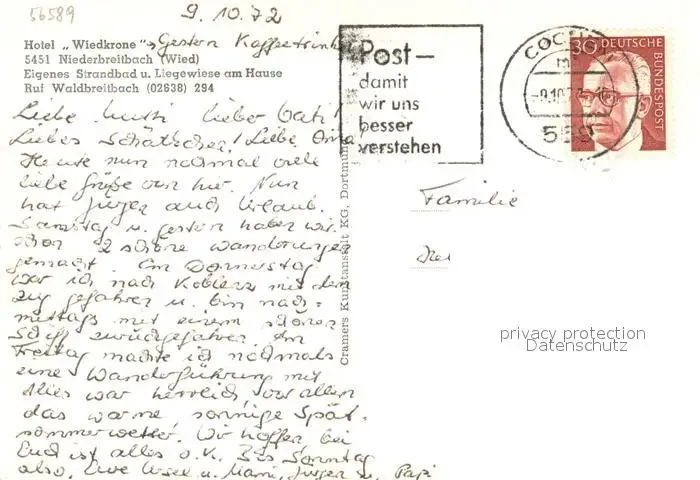 56589
9.10.72
Hotel „Wiedkrone" Gestern Kaffeetrinken
5451 Niederbreitbach (Wied)
Eigenes Strandbad u. Liegewiese am Hause
Ruf Waldbreitbach (02638) 294
Liebe Mutti! Lieber Vati!
Liebes Schätzchen! Liebe Oma
Heute nun nochmal viele
liebe Grüße von hier. Nun
hat Jürgen auch Urlaub.
Samstag u. gestern haben wir
schon 2 schöne Wanderungen
gemacht. Am Donnerstag
war ich nach Koblenz mit dem
Zug gefahren u. bin nach=
mittags mit einem schönen
Schiff zurückgefahren. Am
Freitag machte ich nochmals
eine Wanderführung mit
Alles war herrlich, vor allem
das warme sonnige Spät-
sommerwetter. Wir hoffen bei
Euch ist alles o.K. Bis Sonntag
also, Eure u. Mami, Jürgen u. Papi
Cramers Kunstanstalt KG, Dortmund
Post—
damit
wir uns
besser
verstehen
COCHEM
559
30 DEUTSCHE
BUNDESPOST
Familie
privacy protection
Datenschutz